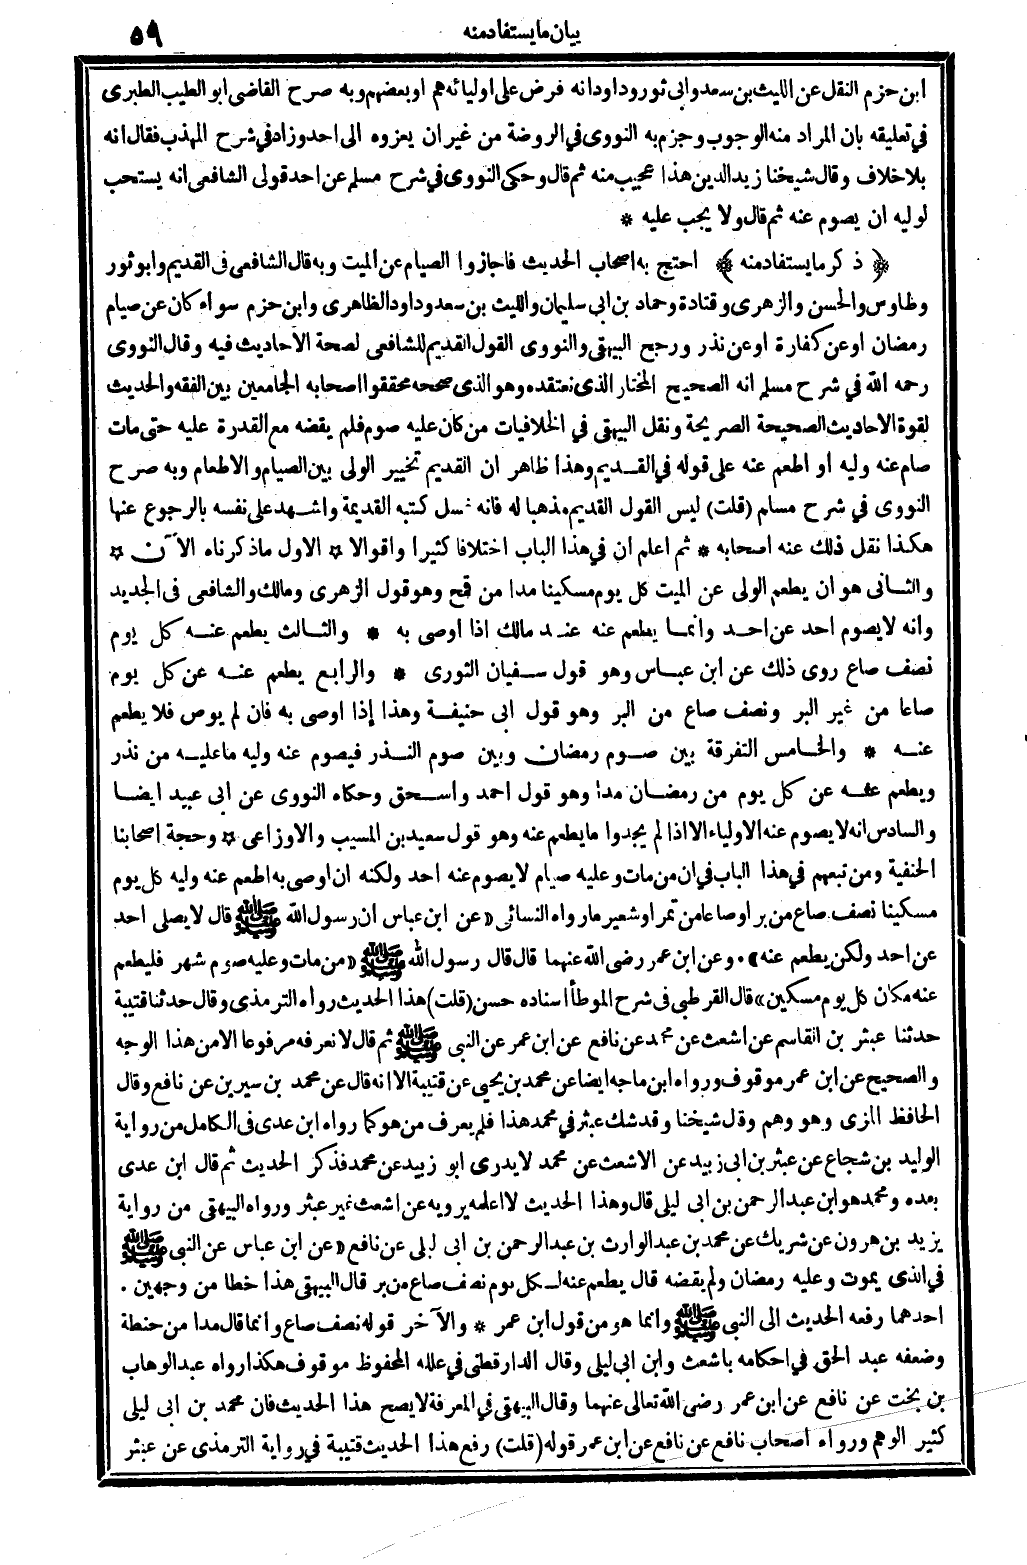 بيان ما يستفاد منه
٥٩
ابن حزم النقل عن الليث بن سعد وابى ثور وداود انه فرض على اوليائه هم او بعضهم وبه صرح القاضى ابو الطيب الطبرى
في تعليقه بان المراد منه الوجوب وجزم به النووى في الروضة من غير ان يعزوه الى احد وزاد في شرح المهذب فقال انه
بلا خلاف وقال شيخنا زيد الدين هذا عجيب منه ثم قال وحكى النووى في شرح مسلم عن احد قولى الشافعى انه يستحب
لوليه ان يصوم عنه ثم قال ولا يجب عليه *
﴿ ذكر ما يستفاد منه ﴾ احتج به اصحاب الحديث فاجازوا الصيام عن الميت وبه قال الشافعى فى القديم وابو ثور
وطاوس والحسن والزهرى وقتادة وحماد بن ابى سليمان والليث بن سعد وداود الظاهرى وابن حزم سواء كان عن صيام
رمضان او عن كفارة او عن نذر ورجح البيهقى والنووى القول القديم للشافعى لصحة الاحاديث فيه وقال النووى
رحمه الله في شرح مسلم انه الصحيح المختار الذى نعتقده وهو الذى صححه محققوا اصحابه الجامعين بين الفقه والحديث
لقوة الاحاديث الصحيحة الصريحة ونقل البيهقى في الخلافيات من كان عليه صوم فلم يقضه مع القدرة عليه حتى مات
صام عنه وليه او اطعم عنه على قوله في القديم وهذا ظاهر ان القديم تخيير الولى بين الصيام والاطعام وبه صرح
النووى في شرح مسلم (قلت) ليس القول القديم مذهبا له فانه غسل كتبه القديمة واشهد على نفسه بالرجوع عنها
هكذا نقل ذلك عنه اصحابه * ثم اعلم ان في هذا الباب اختلافا كثيرا واقوالا * الاول ما ذكرناه الآن *
والثانى هو ان يطعم الولى عن الميت كل يوم مسكينا مدا من قمح وهو قول الزهرى ومالك والشافعى فى الجديد
وانه لا يصوم احد عن احد وانما يطعم عنه عند مالك اذا اوصى به * والثالث يطعم عنه كل يوم
نصف صاع روى ذلك عن ابن عباس وهو قول سفيان الثورى * والرابع يطعم عنه عن كل يوم
صاعا من غير البر ونصف صاع من البر وهو قول ابى حنيفة وهذا إذا اوصى به فان لم يوص فلا يطعم
عنه * والخامس التفرقة بين صوم رمضان وبين صوم النذر فيصوم عنه وليه ما عليه من نذر
ويطعم عنه عن كل يوم من رمضان مدا وهو قول احمد واسحق وحكاه النووى عن ابى عبيد ايضا
والسادس انه لا يصوم عنه الاولياء الا اذا لم يجدوا ما يطعم عنه وهو قول سعيد بن المسيب والاوزاعى * وحجة اصحابنا
الحنفية ومن تبعهم في هذا الباب في ان من مات وعليه صيام لا يصوم عنه احد ولكنه ان اوصى به اطعم عنه وليه كل يوم
مسكينا نصف صاع من بر او صاعا من تمر او شعير ما رواه النسائى « عن ابن عباس ان رسول الله ﷺ قال لا يصلى احد
عن احد ولكن يطعم عنه» . وعن ابن عمر رضى الله عنهما قال قال رسول الله ﷺ «من مات وعليه صوم شهر فليطعم
عنه مكان كل يوم مسكين» قال القرطبى فى شرح الموطأ اسناده حسن (قلت) هذا الحديث رواه الترمذى وقال حدثنا قتيبة
حدثنا عبثر بن القاسم عن اشعث عن محمد عن نافع عن ابن عمر عن النبى ﷺ ثم قال لا نعرفه مرفوعا الا من هذا الوجه
والصحيح عن ابن عمر موقوف ورواه ابن ماجه ايضا عن محمد بن يحيى عن قتيبة الا انه قال عن محمد بن سيرين عن نافع وقال
الحافظ المزى وهو وهم وقال شيخنا وقد شك عبثر في محمد هذا فلم يعرف من هو كما رواه ابن عدى فى الكامل من رواية
الوليد بن شجاع عن عبثر بن ابى زبيد عن الاشعث عن محمد لا يدرى ابو زبيد عن محمد فذكر الحديث ثم قال ابن عدى
بعده ومحمد هو ابن عبد الرحمن بن ابى ليلى قال وهذا الحديث لا اعلمه يرويه عن اشعث غير عبثر ورواه البيهقى من رواية
يزيد بن هرون عن شريك عن محمد بن عبد الوارث بن عبد الرحمن بن ابى ليلى عن نافع «عن ابن عباس عن النبى ﷺ
في الذى يموت وعليه رمضان ولم يقضه قال يطعم عنه لكل يوم نصف صاع من بر قال البيهقى هذا خطا من وجهين .
احدهما رفعه الحديث الى النبى ﷺ وانما هو من قول ابن عمر * والآخر قوله نصف صاع وانما قال مدا من حنطة
وضعفه عبد الحق في احكامه باشعث وابن ابى ليلى وقال الدارقطنى في علله المحفوظ موقوف هكذا رواه عبد الوهاب
بن بخت عن نافع عن ابن عمر رضى الله تعالى عنهما وقال البيهقى في المعرفة لا يصح هذا الحديث فان محمد بن ابى ليلى
كثير الوهم ورواه اصحاب نافع عن نافع عن ابن عمر قوله (قلت) رفع هذا الحديث قتيبة في رواية الترمذى عن عبثر